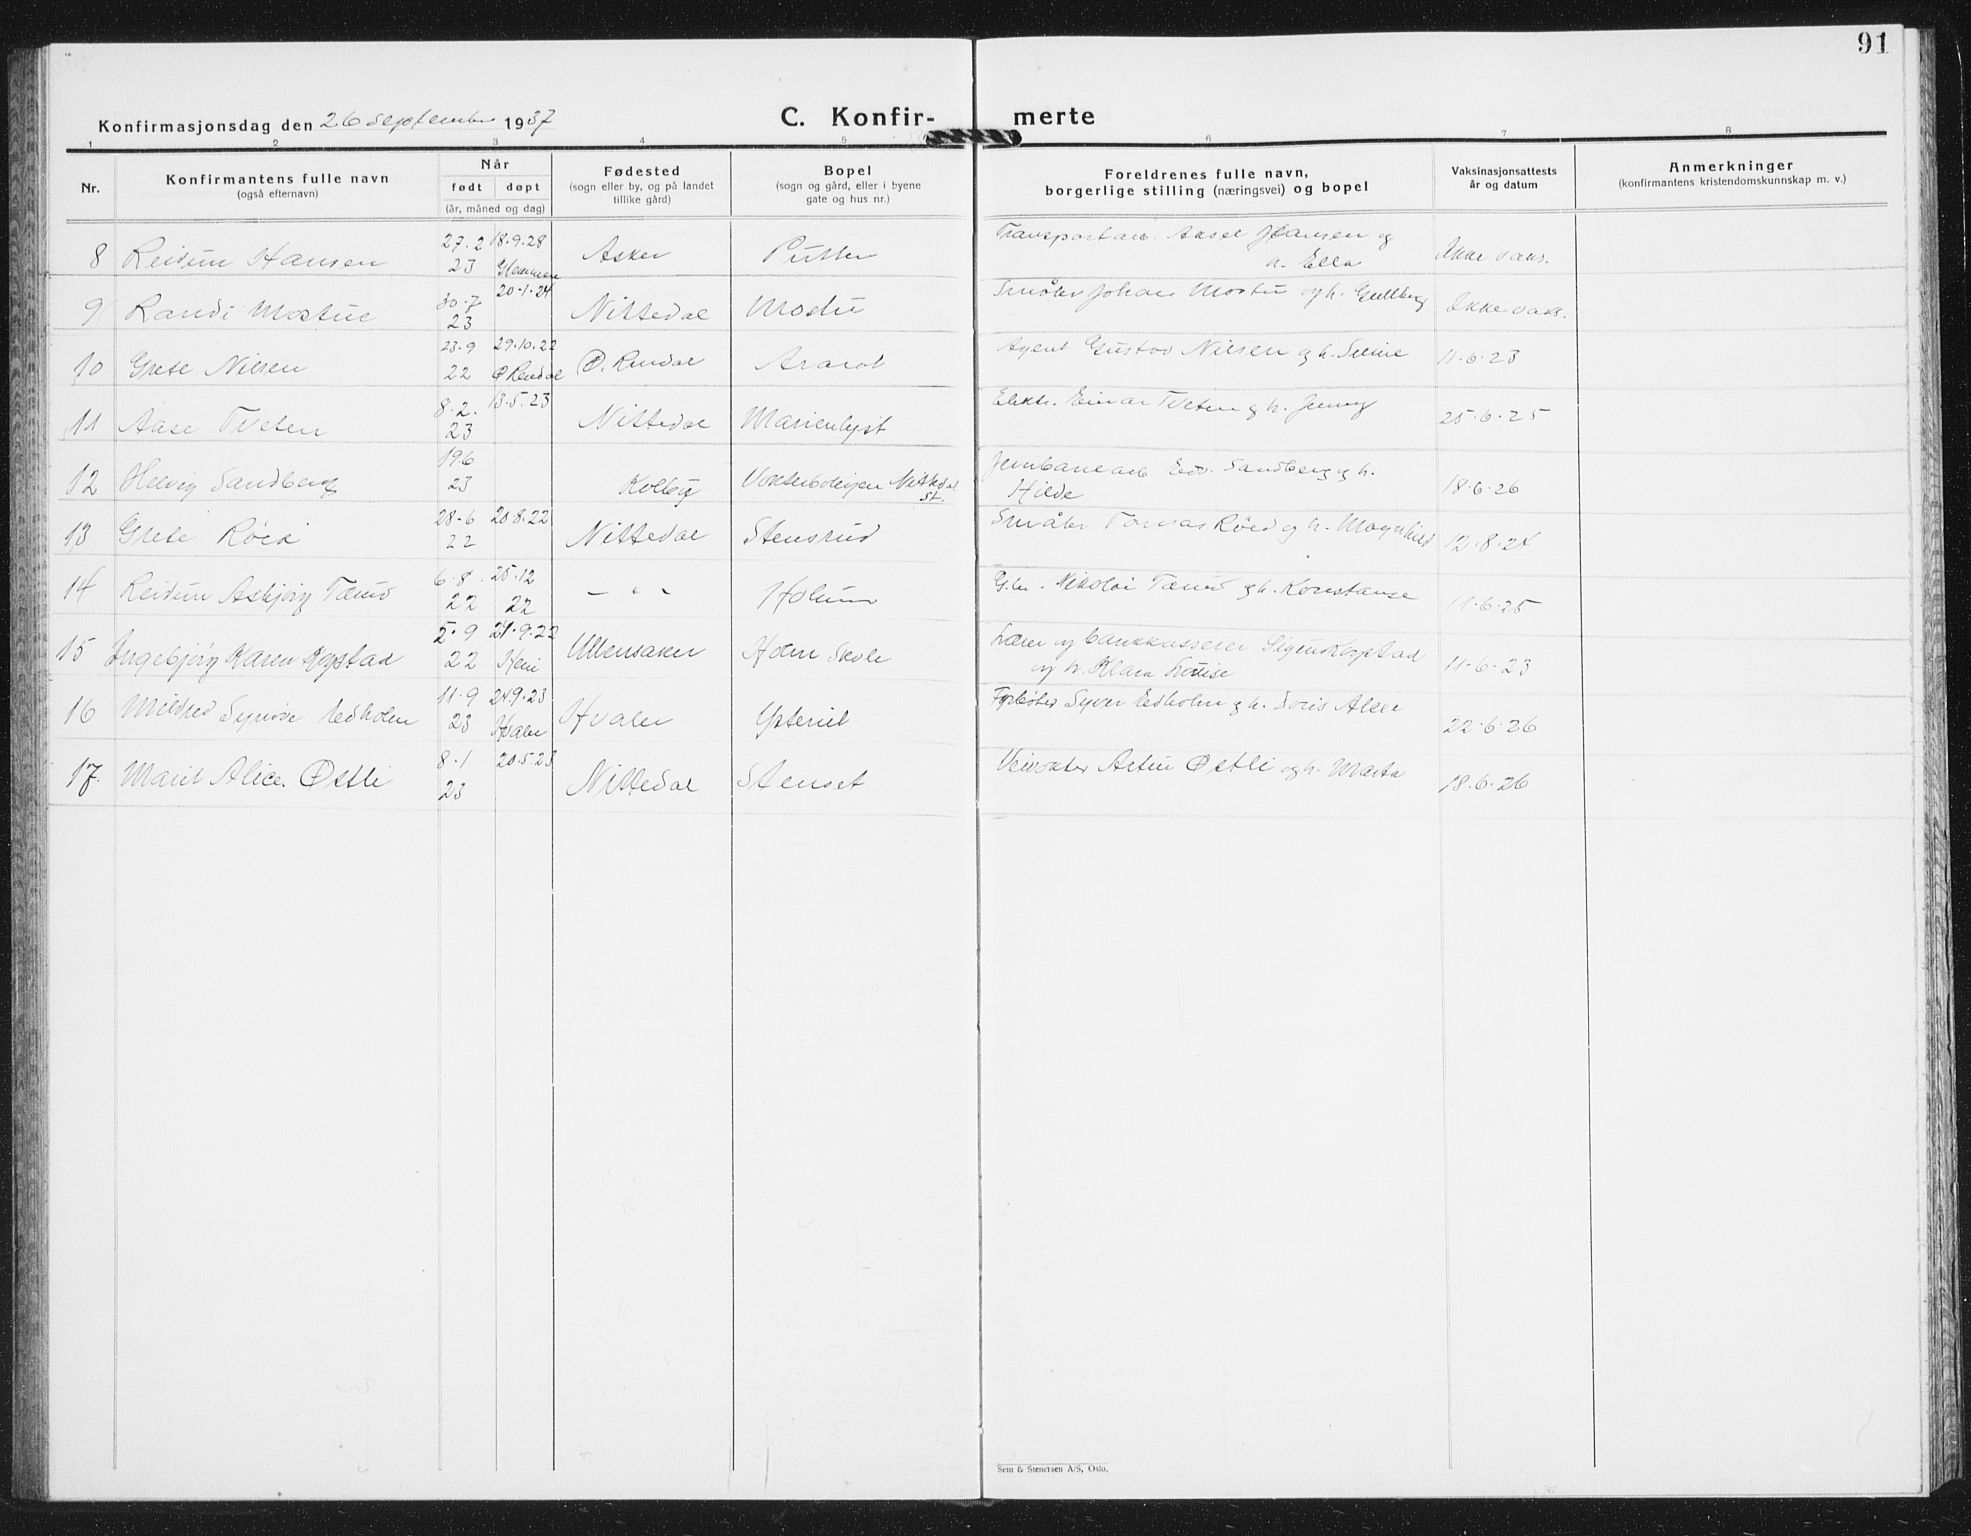 91
Konfirmasjonsdag den 26 September 1937
C. Konfir- merte
1 2 3 4 5 6 7 8
Nr.
Konfirmantens fulle navn
(også efternavn)
Når
født døpt
(år, måned og dag)
Fødested
(sogn eller by, og på landet
tillike gård)
Bopel
(sogn og gård, eller i byene
gate og hus nr.)
Foreldrenes fulle navn,
borgerlige stilling (næringsvei) og bopel
Vaksinasjonsattests
år og datum
Anmerkninger
(konfirmantens kristendomskunnskap m. v.)
8 Reidun Hansen 27.2 23 18.9.28 Asker Putten Transportarb. Aksel Hansen og h. Ella Ikke vaks.
9 Randi Mostue 30.7 23 20.1.24 Nittedal Mostu Småbr Johan Mostu og h. Gullborg Ikke vaks.
10 Grete Nilsen 23.9 22 29.10.22 Ø Rendal Ø. Rendal Ararat Agent Gustav Nilsen og h. 11.6.23
11 Aase Tveten 8.2. 23 13.5.23 Nittedal Marienlyst Elektr. Einar Tveten og h. Jenny 25.6.25
12 Helvig Sandberg 19.6 23 Kolbu Vokterboligen Nittedal St. Jernbanearb Edv. Sandberg og h. Hilde 18.6.26
13 Grete Röed 28.6 22 20.8.22 Nittedal Stensrud Småbr Tomas Röed og h. Magnhild 12.8.24
14 Reidun Asbjörg Tærud 6.8. 22 25.12 22 — " " Holum G.br. Nikolai Tærud og h. Konstanse 11.6.25
15 Ingebjörg Karen Rystad 5.9 22 24.9.22 Ullensaker Holm Skole Lærer og bankkasserer Sigurd Rystad og h. Klara Lovise 11.6.23
16 Mildred Synöve Edholm 11.9 23 24.9.23 Hvaler Hvaler Ysteriet Fyrböter Syver Edholm og h. 22.6.26
17. Marit Alice. Østli 8.1 23 20.5.23 Nittedal Stenset Veivokter Artur Østli og h. Marta 18.6.26
Sem & Stenersen A/S, Oslo.